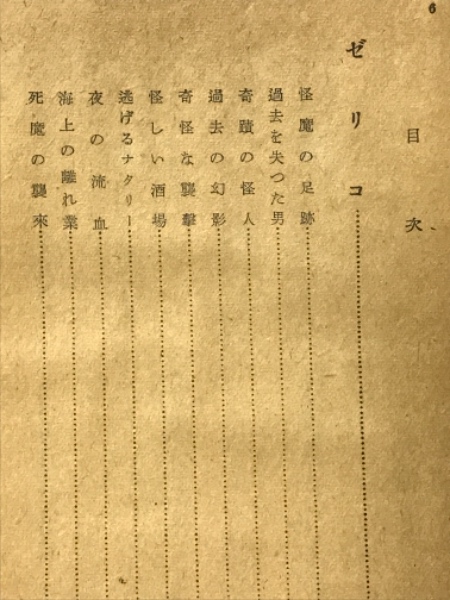 6
目次
ゼリコ
怪魔の足跡
過去を失つた男
奇蹟の怪人
過去の幻影
奇怪な襲擊
怪しい酒場
逃げるナタリー
夜の流血
海上の離れ業
死魔の襲來